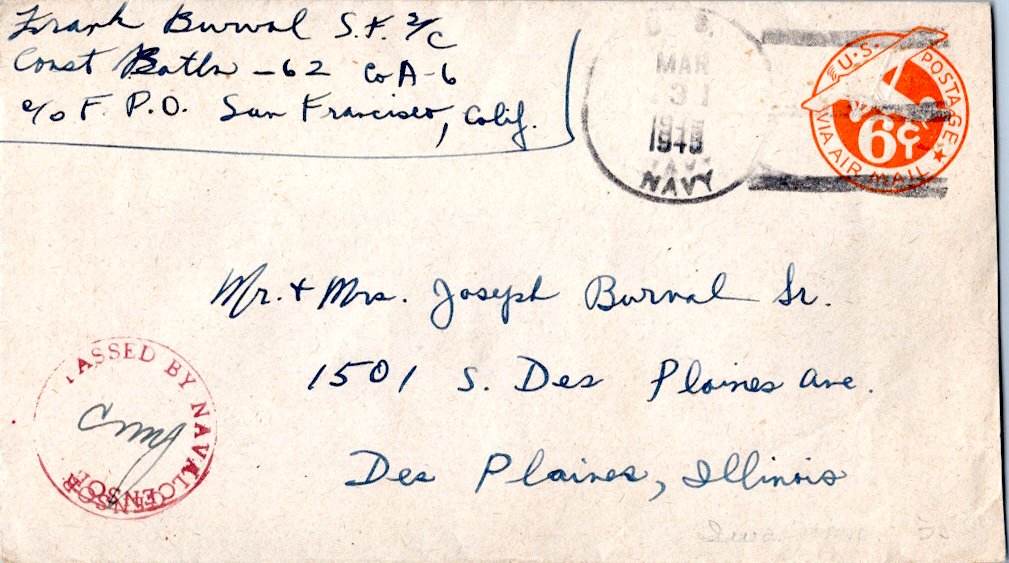 Frank Burval S.F. 2/C
Const Batln - 62 Co A-6
c/o F. P.O. San Francisco, Calif.
U. S.
MAR
31
NAVY
U.S. POSTAGE
6¢
VIA AIR MAIL
Mr. + Mrs. Joseph Burval Sr.
1501 S. Des Plaines Ave.
Des Plaines, Illinois
PASSED BY NAVAL CENSOR